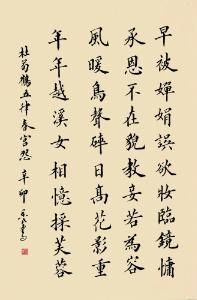 早被嬋娟誤欲妝臨鏡慵
承恩不在貌教妾若為容
風暖鳥聲碎日高花影重
年年越溪女相憶採芙蓉
杜荀鶴五律春宮怨 辛卯